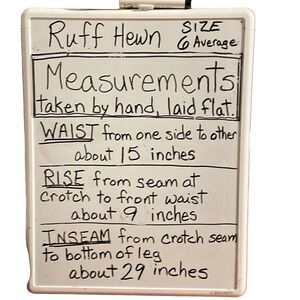 Ruff Hewn SIZE
6 Average
Measurements
taken by hand, laid flat.
WAIST from one side to other
about 15 inches
RISE from seam at
crotch to front waist
about 9 inches
INSEAM from crotch seam
to bottom of leg
about 29 inches